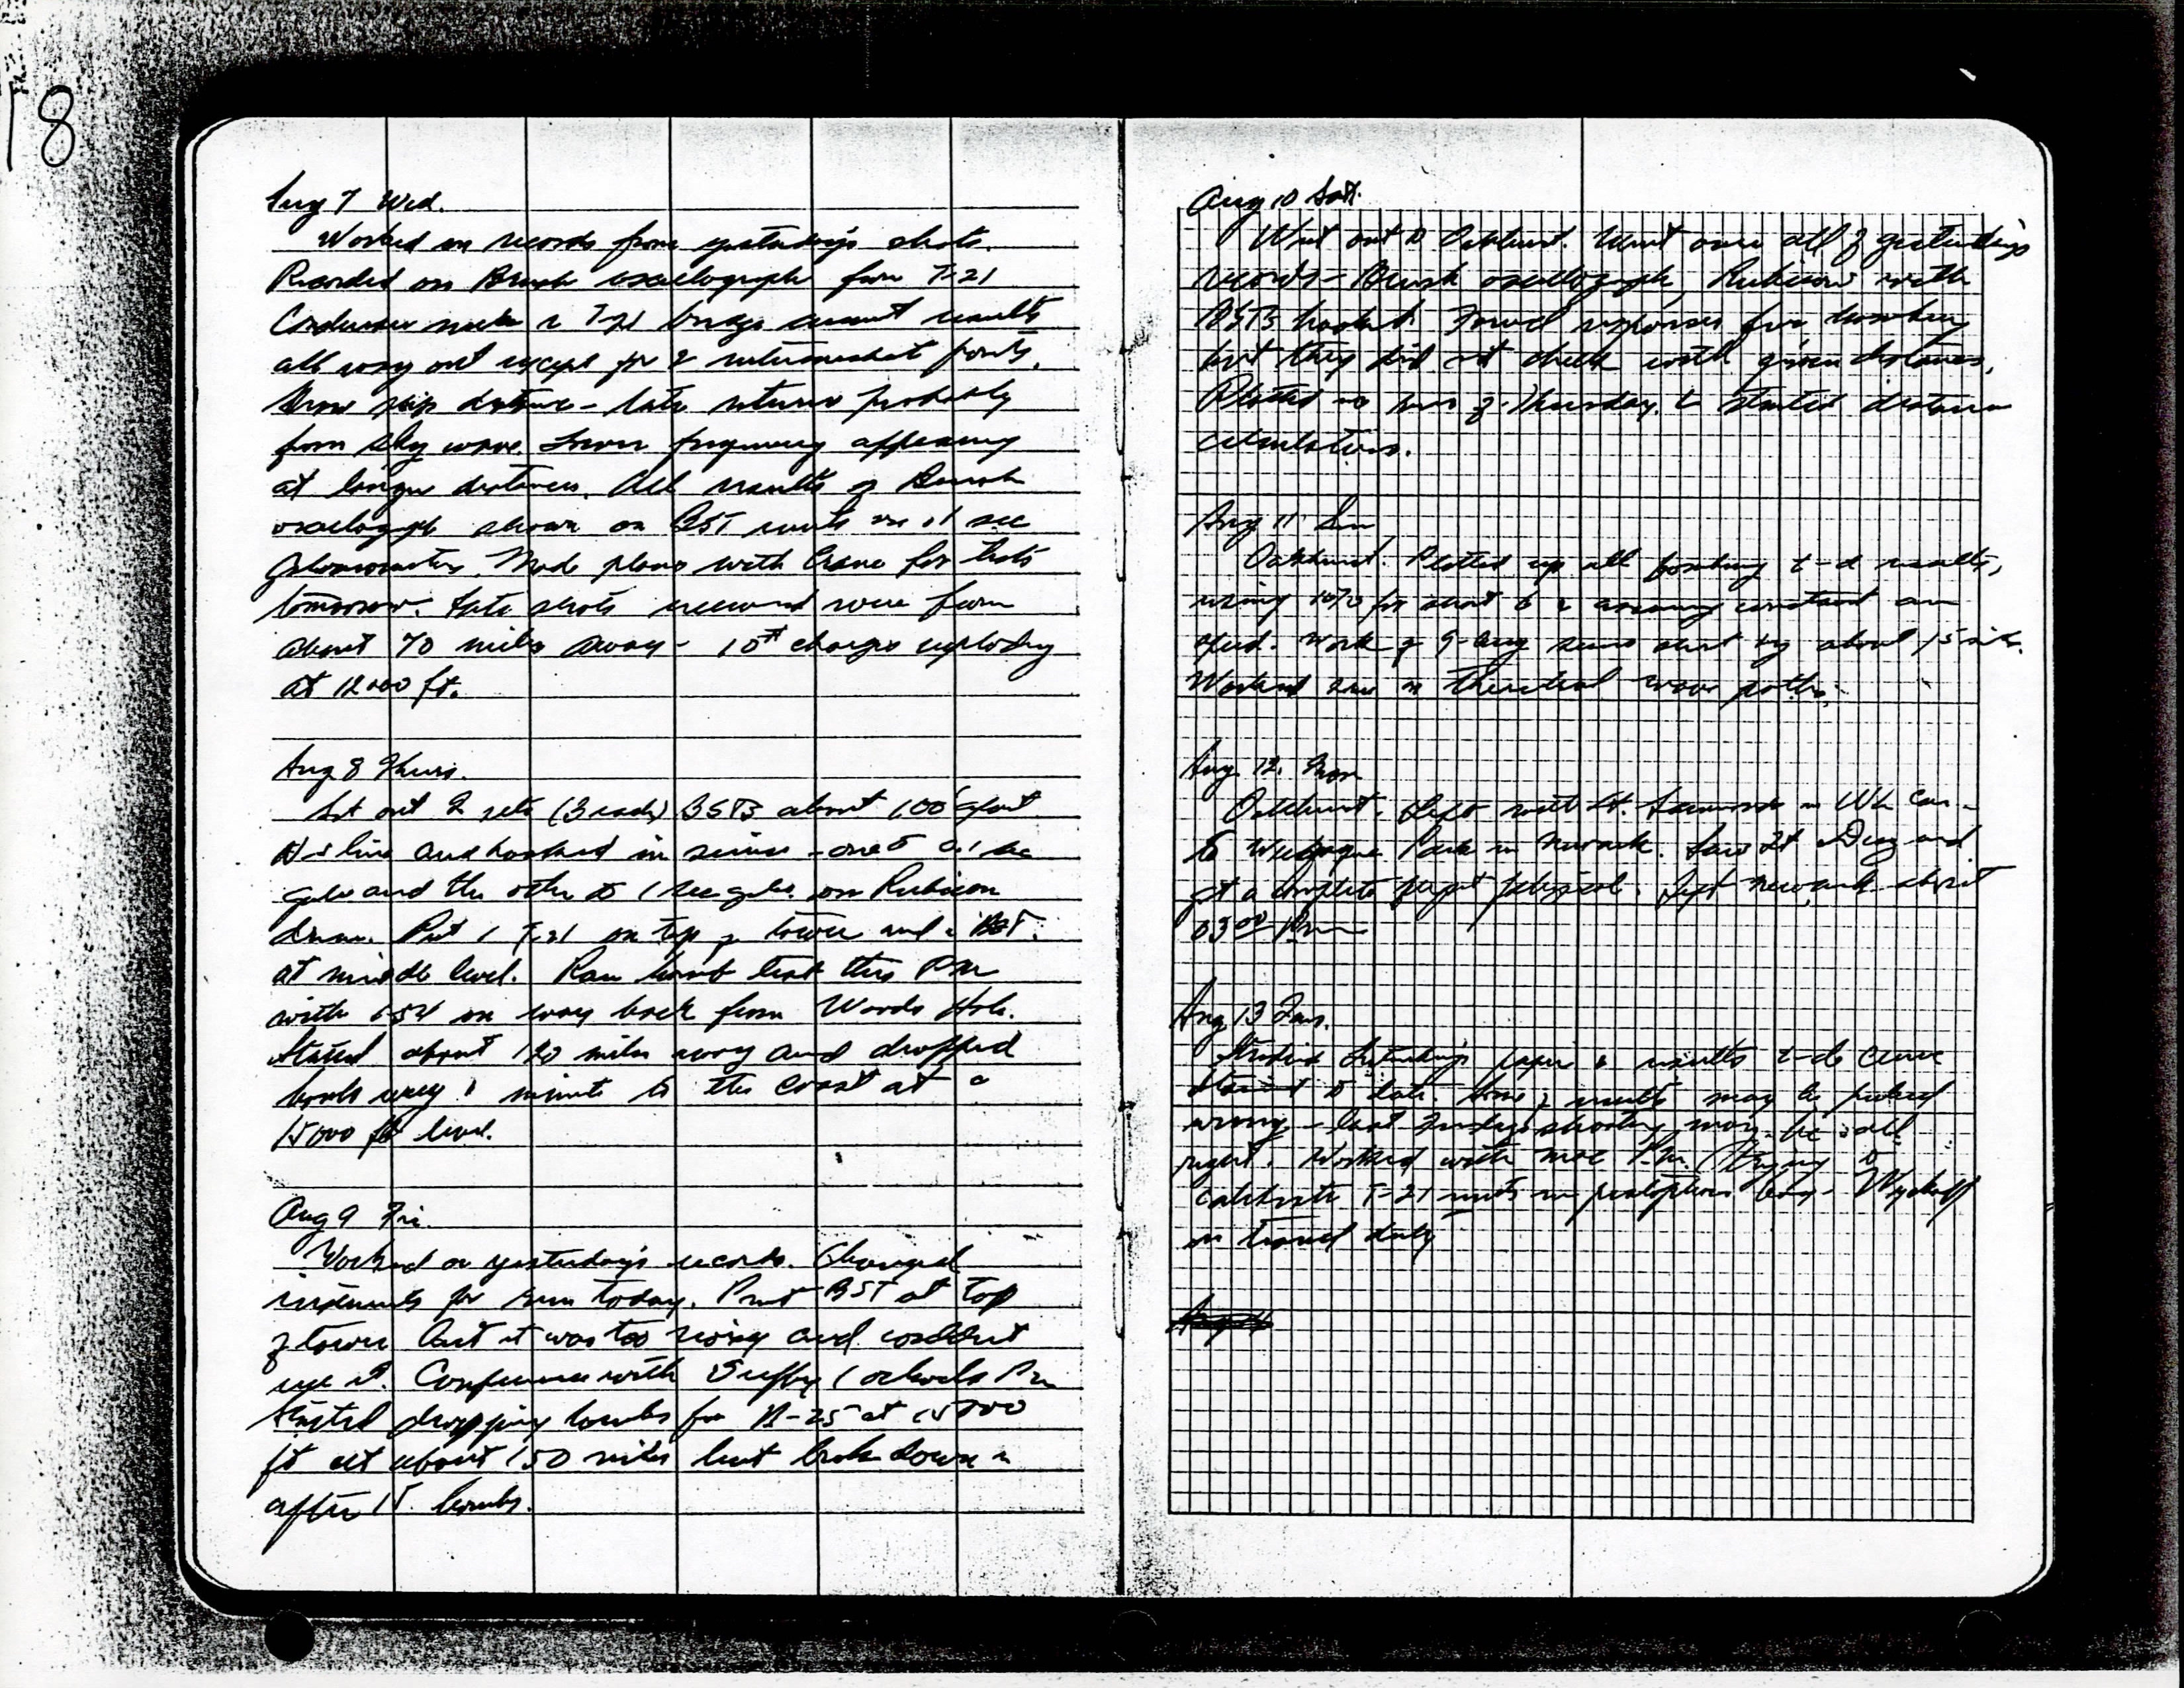 18
Aug 7 Wed.
Worked on records from yesterday's shots.
Recorded on Brush oscillograph from T-21
Condenser T-21 bridge results
all way out except for 2 intermediat points.
Show skip distance - late returns probably
from sky wave. Lower frequency appearing
at longer distances. All results of Brush
oscillograph shown on BST units on .1 sec
galvanometers. Made plans with Crane for tests
tomorrow. Late shots received were from
about 70 miles away - 10# charges exploding
at 12000 ft.
Aug 8 Thurs.
Set out 2 sets (3 each) BSTs about 100' apart
line and hooked in series - one to 0.1 sec
galv and the other to 1 sec galv. on Rubicon
drum. Put 1 T-21 on top of tower and a BST.
at middle level. Ran bomb test this PM
with on way back from Woods Hole.
Started about 120 miles away and dropped
bombs every 1 minute to the coast at a
15000 ft level.
Aug 9 Fri.
Worked on yesterday's records. Changed
instruments for run today. Put BST at top
of tower but it was too noisy and couldn't
use it. Conference with 1 oclock PM
Started dropping bombs from B-25 at 15000
ft at about 150 miles but broke down
after 15 bombs.
Aug 10 Sat.
Went out to Oakhurst. Went over all of yesterdays
records - Brush oscillograph, Rubicon with
BSTs hooked. Found responses for bombing
but they did not check with given distances.
Plotted up runs of Thursday & started distance
calculations.
Aug 11 Sun
Oakhurst. Plotted up all bombing t-d results,
using 1070 for & assuming constant air
speed. Work of 9-Aug seems out by about 15 mi.
Worked some on theoretical wave paths.
Aug. 12. Mon
Oakhurst. Left with Lt. in Car -
to Park in Newark. Saw Lt and
got a complete flight physical. Left Newark about
0300 PM
Aug 13 Tues.
Studied Gutenberg's paper & results t-d curve
to date. Some of results may be picked
wrong - last Friday's shooting may be all
right. Worked with Moe P.M. trying to
calibrate T-21 units in - Wyckoff
on travel duty